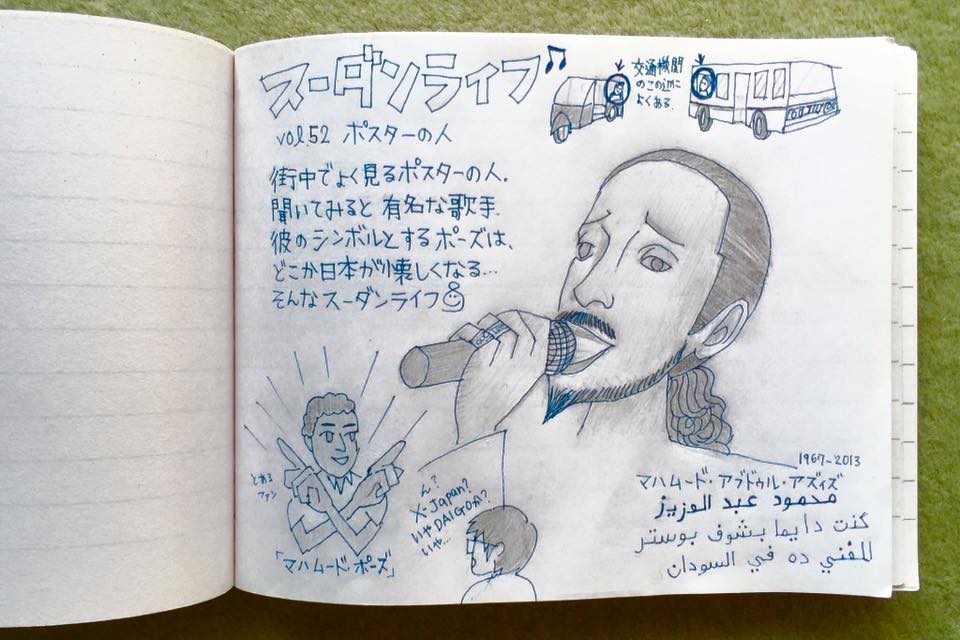 スーダンライフ♫
vol.52 ポスターの人
街中でよく見るポスターの人.
聞いてみると有名な歌手.
彼のシンボルとするポーズは、
どこか日本が懐しくなる…
そんなスーダンライフ
交通機関
のこの辺に
よくある.
とある
ファン
「マハムード・ポーズ」
ん?
X-Japan?
いやDAIGOか?
いや…
1967-2013
マハムード・アブドゥル・アズィズ
محمود عبد العزيز
كنت دايما بشوف بوستر
للمغني ده في السودان